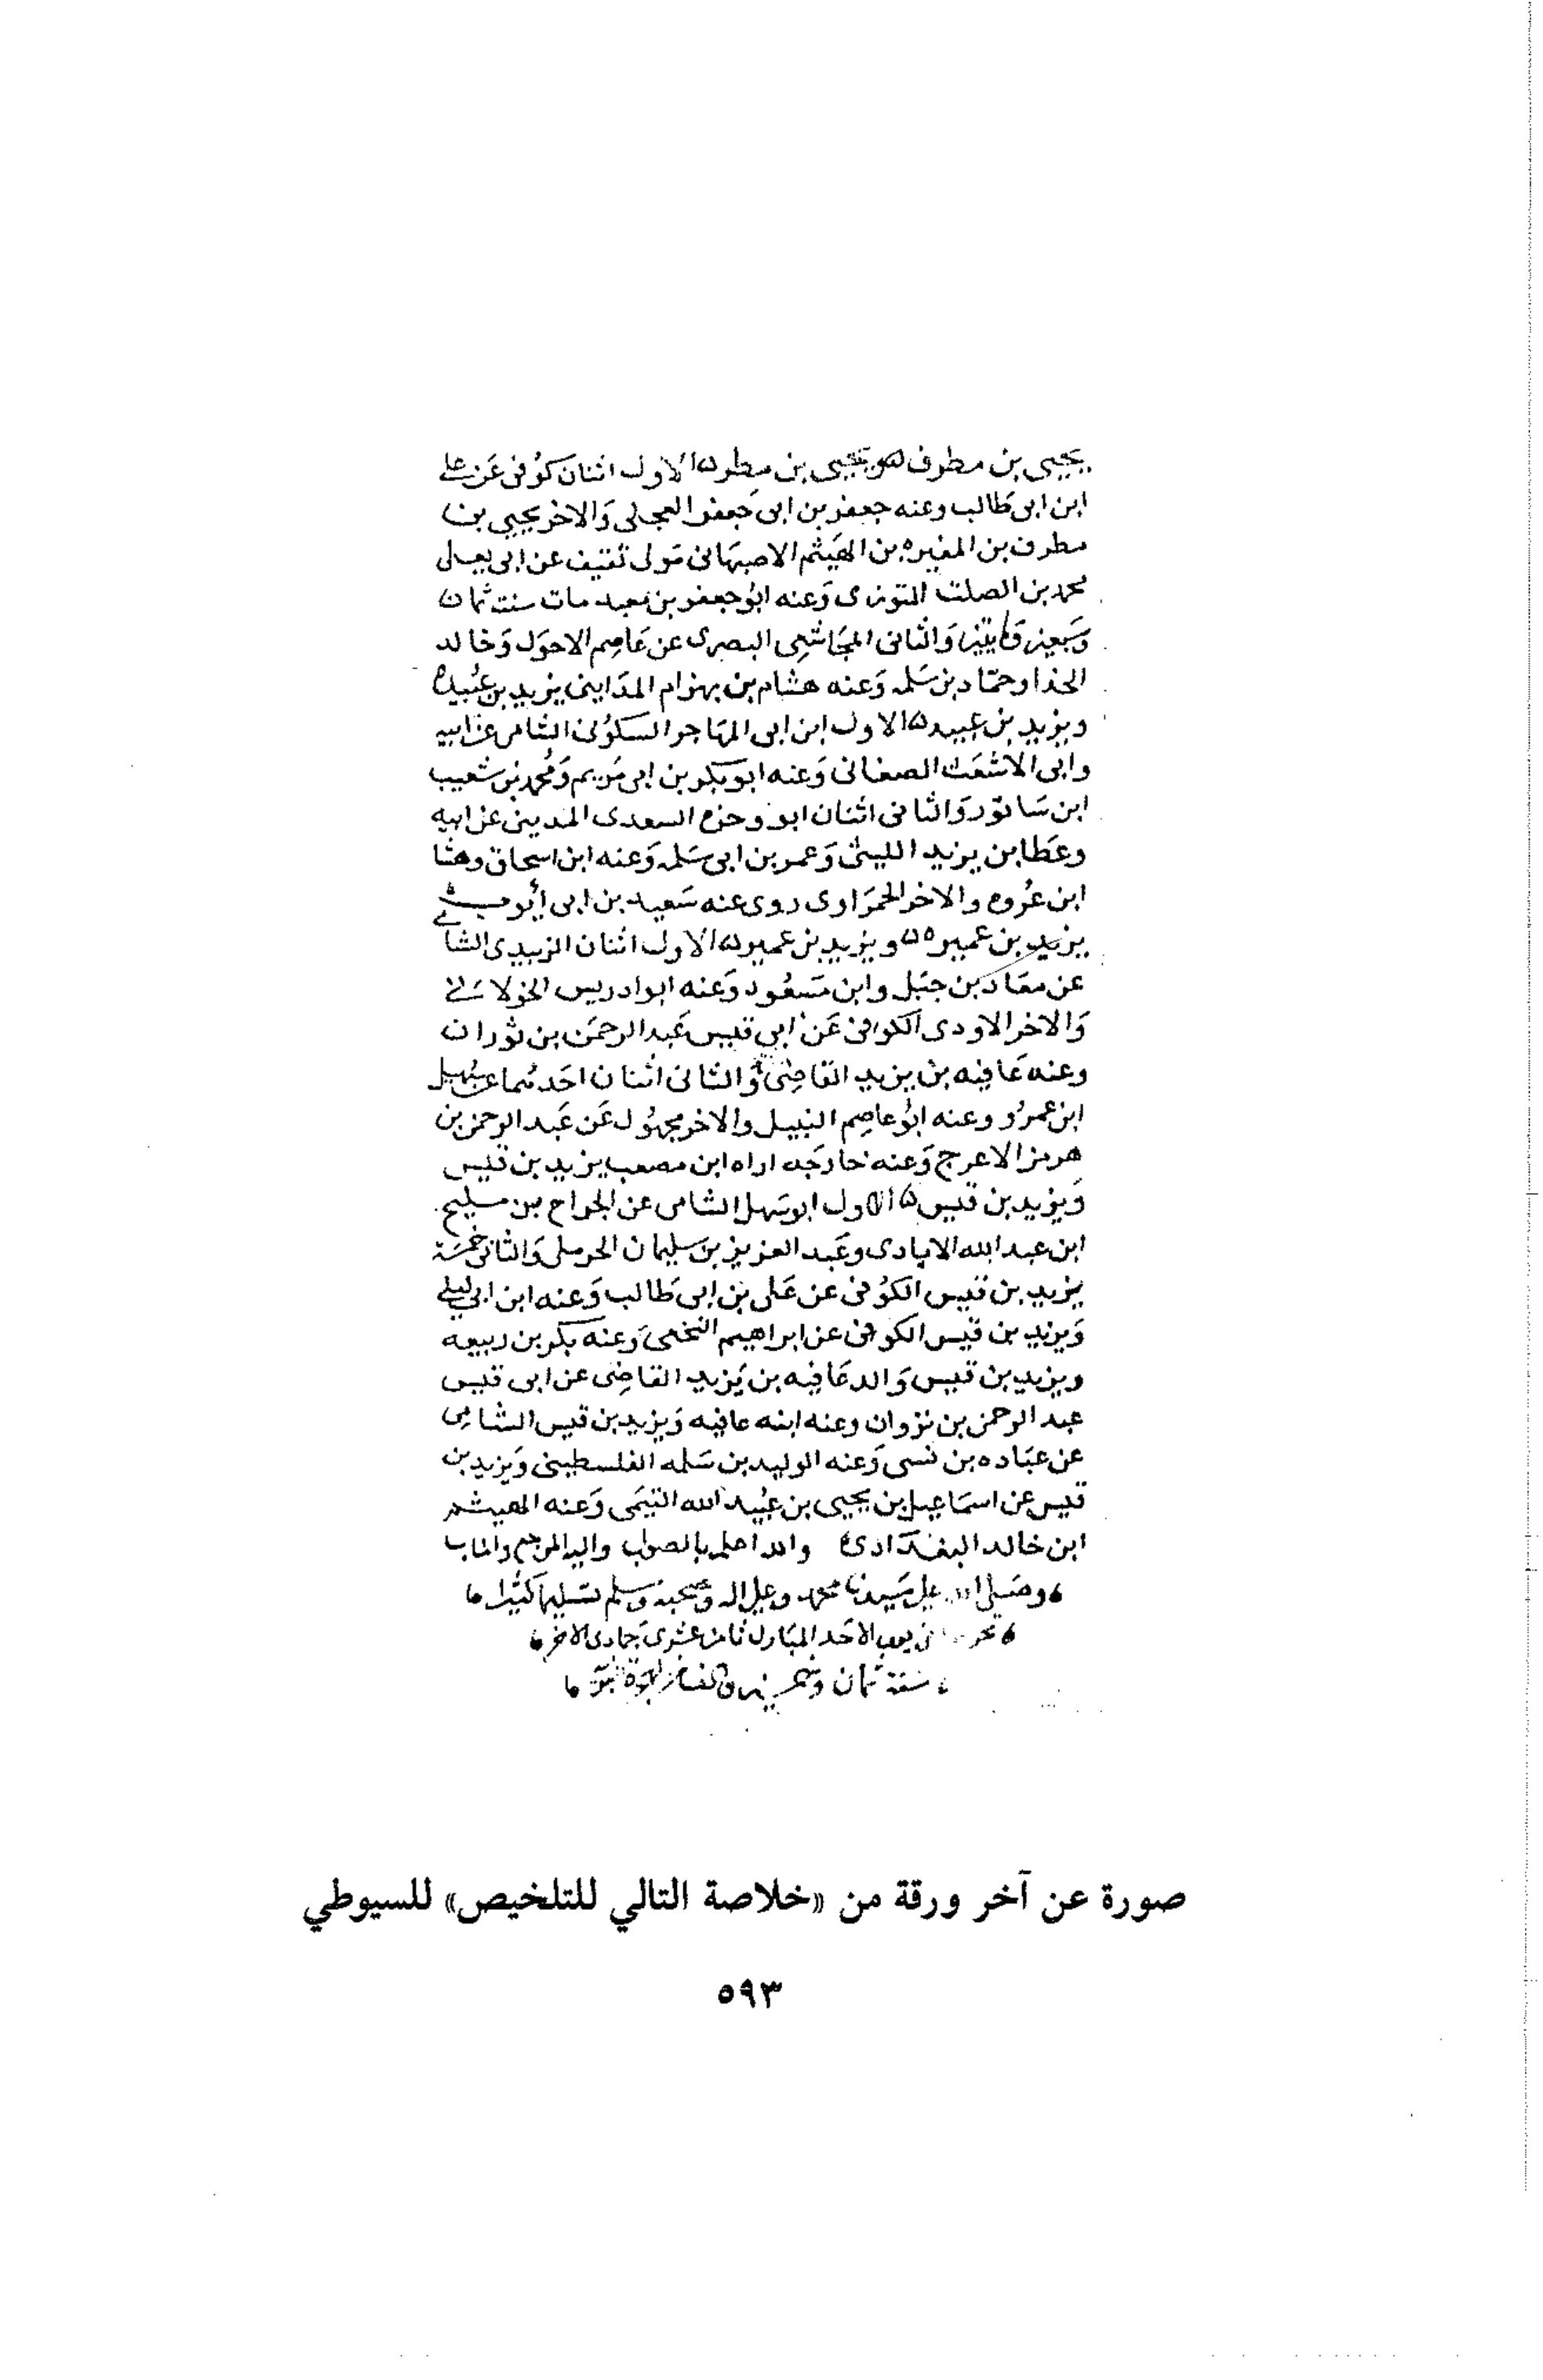 يحيى بن مطرف ويحيى بن مطر الاول اثنان كوفى عن على
ابن ابى طالب وعنه جعفر بن ابى جعفر العجلى والاخر يحيى بن
مطرف بن المغيره بن الهيثم الاصبهانى مولى ثقيف عن ابى يعلى
محمد بن الصلت التوزى وعنه ابو جعفر بن معبد مات سنة ثمان
وسبعين ومايتين والثانى المجاشعى البصرى عن عاصم الاحول وخالد
الحذا وحماد بن سلمه وعنه هشام بن بهرام المداينى يزيد بن عبيده
ويزيد بن عبيد الاول ابن ابى المهاجر السكونى الشامى عن ابيه
وابى الاشعث الصنعانى وعنه ابو بكر بن ابى مريم ومحمد بن شعيب
ابن سابور والثانى اثنان ابو وجزه السعدى المدينى عن ابيه
وعطا بن يزيد الليثى وعمر بن ابى سلمه وعنه ابن اسحاق وهشا
ابن عروه والاخر الحمراوى روى عنه سعيد بن ابى أيوب
يزيد بن عميره ويزيد بن عمير الاول اثنان الزبيدى الشا
عن معاد بن جبل وابن مسعود وعنه ابو ادريس الخولانى
والاخر الاودى الكوفى عن ابي قيس عبد الرحمن بن ثوران
وعنه عافيه بن يزيد القاضى والثانى اثنان احدهما عن سهيل
ابن عمرو وعنه ابو عاصم النبيل والاخر مجهول عن عبد الرحمن بن
هرمز الاعرج وعنه خارجه اراه ابن مصعب يزيد بن قيس
ويزيد بن قيس الاول ابو سهل الشامى عن الجراح بن مليح
ابن عبد الله الايادى وعبد العزيز بن سليمان الحرملى والثانى خمسة
يزيد بن قيس الكوفى عن على بن ابى طالب وعنه ابن ابى ليلى
ويزيد بن قيس الكوفى عن ابراهيم النخعى وعنه بكر بن ربيعه
ويزيد بن قيس والد عافيه بن يزيد القاضى عن ابى قيس
عبد الرحمن بن نزوان وعنه ابنه عافيه ويزيد بن قيس الشامى
عن عباده بن نسى وعنه الوليد بن سلمه الفلسطينى ويزيد بن
قيس عن اسماعيل بن يحيى بن عبيد الله التيمى وعنه الهيثم
ابن خالد البغدادى والله اعلم بالصواب واليه المرجع والماب
وصلى الله على سيدنا محمد وعلى اله وصحبه وسلم تسليما كثيرا
فى يوم الاحد المبارك ثامن عشرى جمادى الاخر
سنة ثمان
صورة عن آخر ورقة من «خلاصة التالي للتلخيص» للسيوطي
٥٩٣